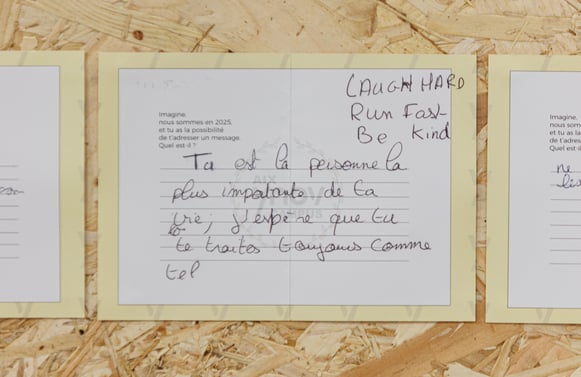 LAUGH HARD
Run Fast
Be Kind
Imagine,
nous sommes en 2025,
et tu as la possibilité
de t'adresser un message.
Quel est-il ?
Tu est la personne la
plus importante de ta
vie, j'espère que tu
te traites toujours comme
tel
Imagine,
nous som
et tu as la
de t'adres
Quel est-i
ne